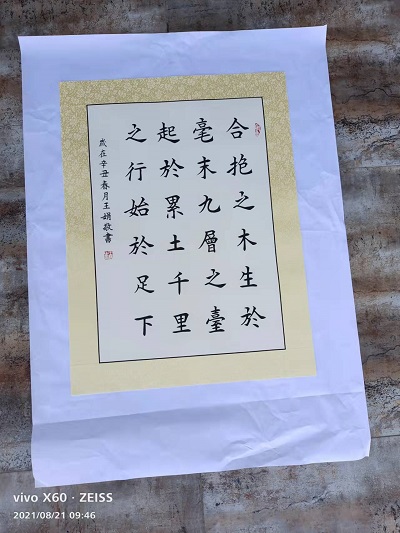 合抱之木生於
毫末九層之臺
起於累土千里
之行始於足下
歲在辛丑春月王娟敬書
vivo X60 · ZEISS
2021/08/21 09:46